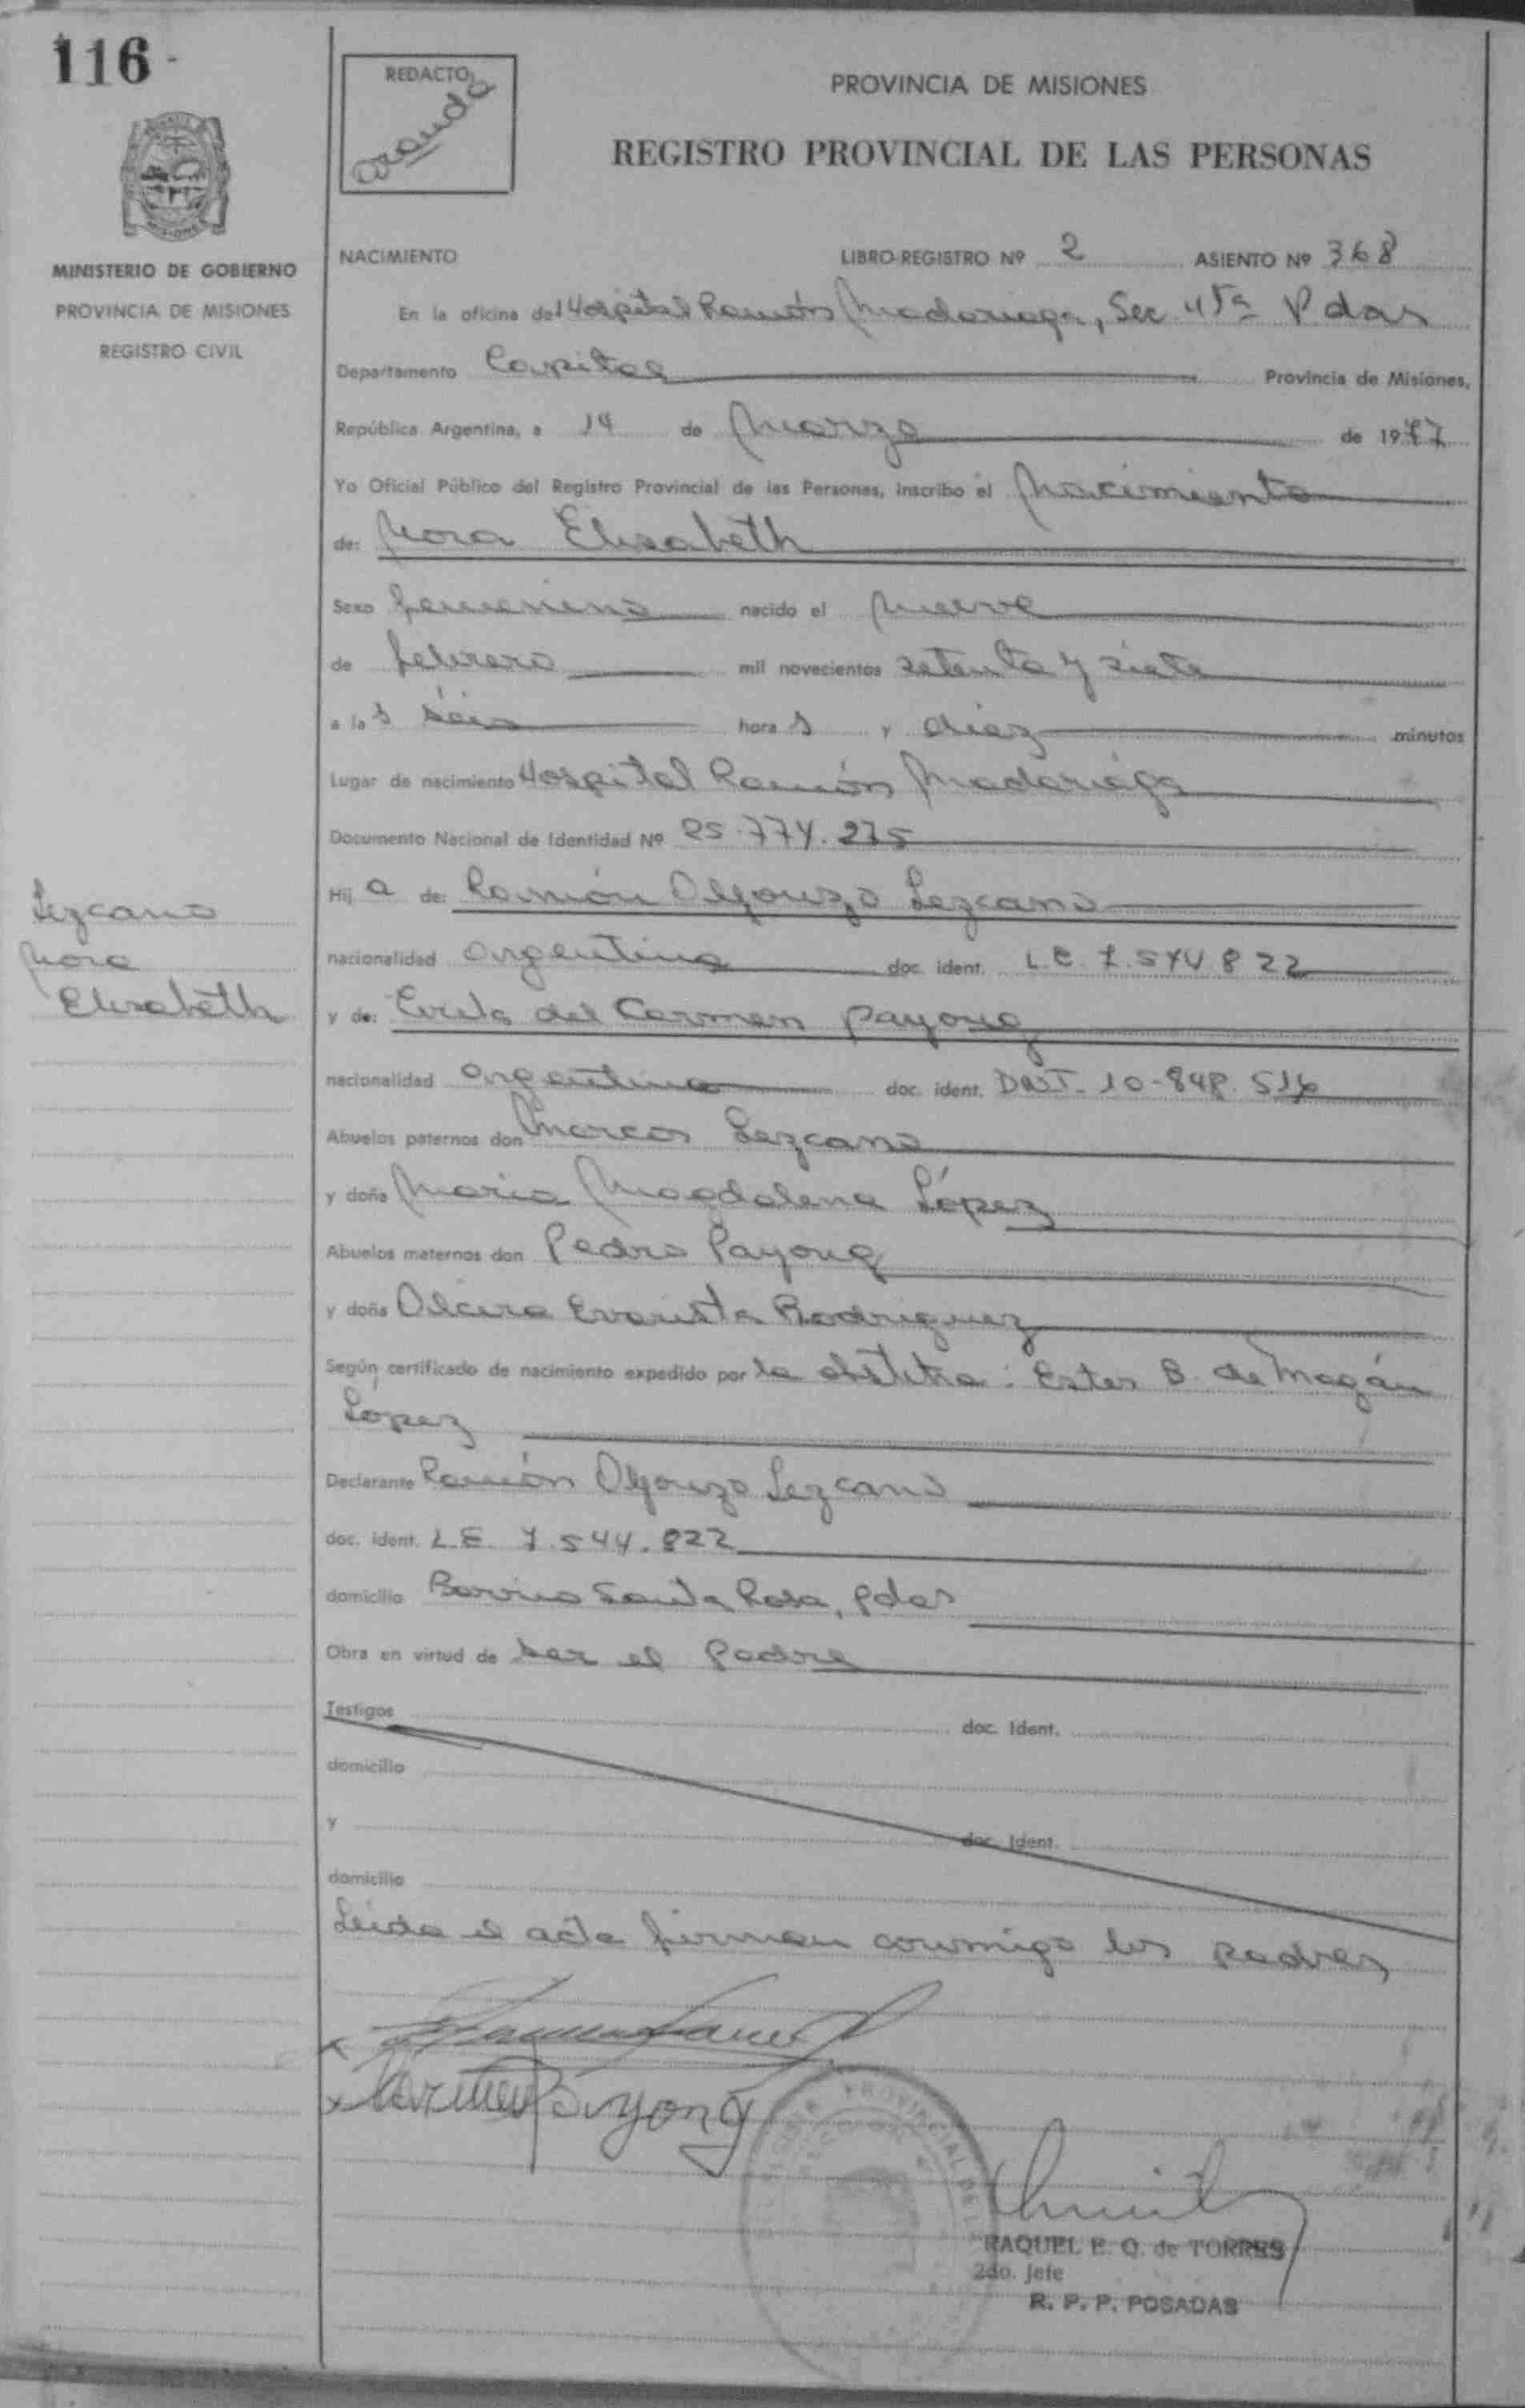 116
REDACTO
Aranda
PROVINCIA DE MISIONES
REGISTRO PROVINCIAL DE LAS PERSONAS
MISIONES
MINISTERIO DE GOBIERNO
PROVINCIA DE MISIONES
REGISTRO CIVIL
NACIMIENTO LIBRO-REGISTRO Nº 2 ASIENTO Nº 368
En la oficina del Hospital Ramón Madariaga, Sec 4ta Pdas
Departamento Capital Provincia de Misiones,
República Argentina, a 14 de Marzo de 1977
Yo Oficial Público del Registro Provincial de las Personas, inscribo el Nacimiento
de: Nora Elisabeth
Sexo femenino nacido el nueve
de febrero mil novecientos setenta y siete
a las séis horas y diez minutos
Lugar de nacimiento Hospital Ramón Madariaga
Documento Nacional de Identidad Nº 25.774.275
Hija de: Ramón Alfonzo Lezcano
nacionalidad argentina doc. ident. L.E. 7.544.822
y de: del Carmen Payong
nacionalidad argentina doc. ident. 10-848.516
Abuelos paternos don Marcos Lezcano
y doña Maria Magdalena López
Abuelos maternos don Pedro Payong
y doña Alcira Evarista Rodriguez
Según certificado de nacimiento expedido por la obstetra: Ester B. de Magán
López
Declarante Ramón Alfonzo Lezcano
doc. ident. L.E. 7.544.822
domicilio Barrio Santa Rosa, Pdas
Obra en virtud de ser el padre
Testigos doc. Ident.
domicilio
y doc. Ident.
domicilio
Leida el acta firman conmigo los padres
Lezcano
Nora
Elisabeth
Carmen Payong
PROVINCIAL DE
RAQUEL E. Q. de TORRES
2do. Jefe
R. P. P. POSADAS